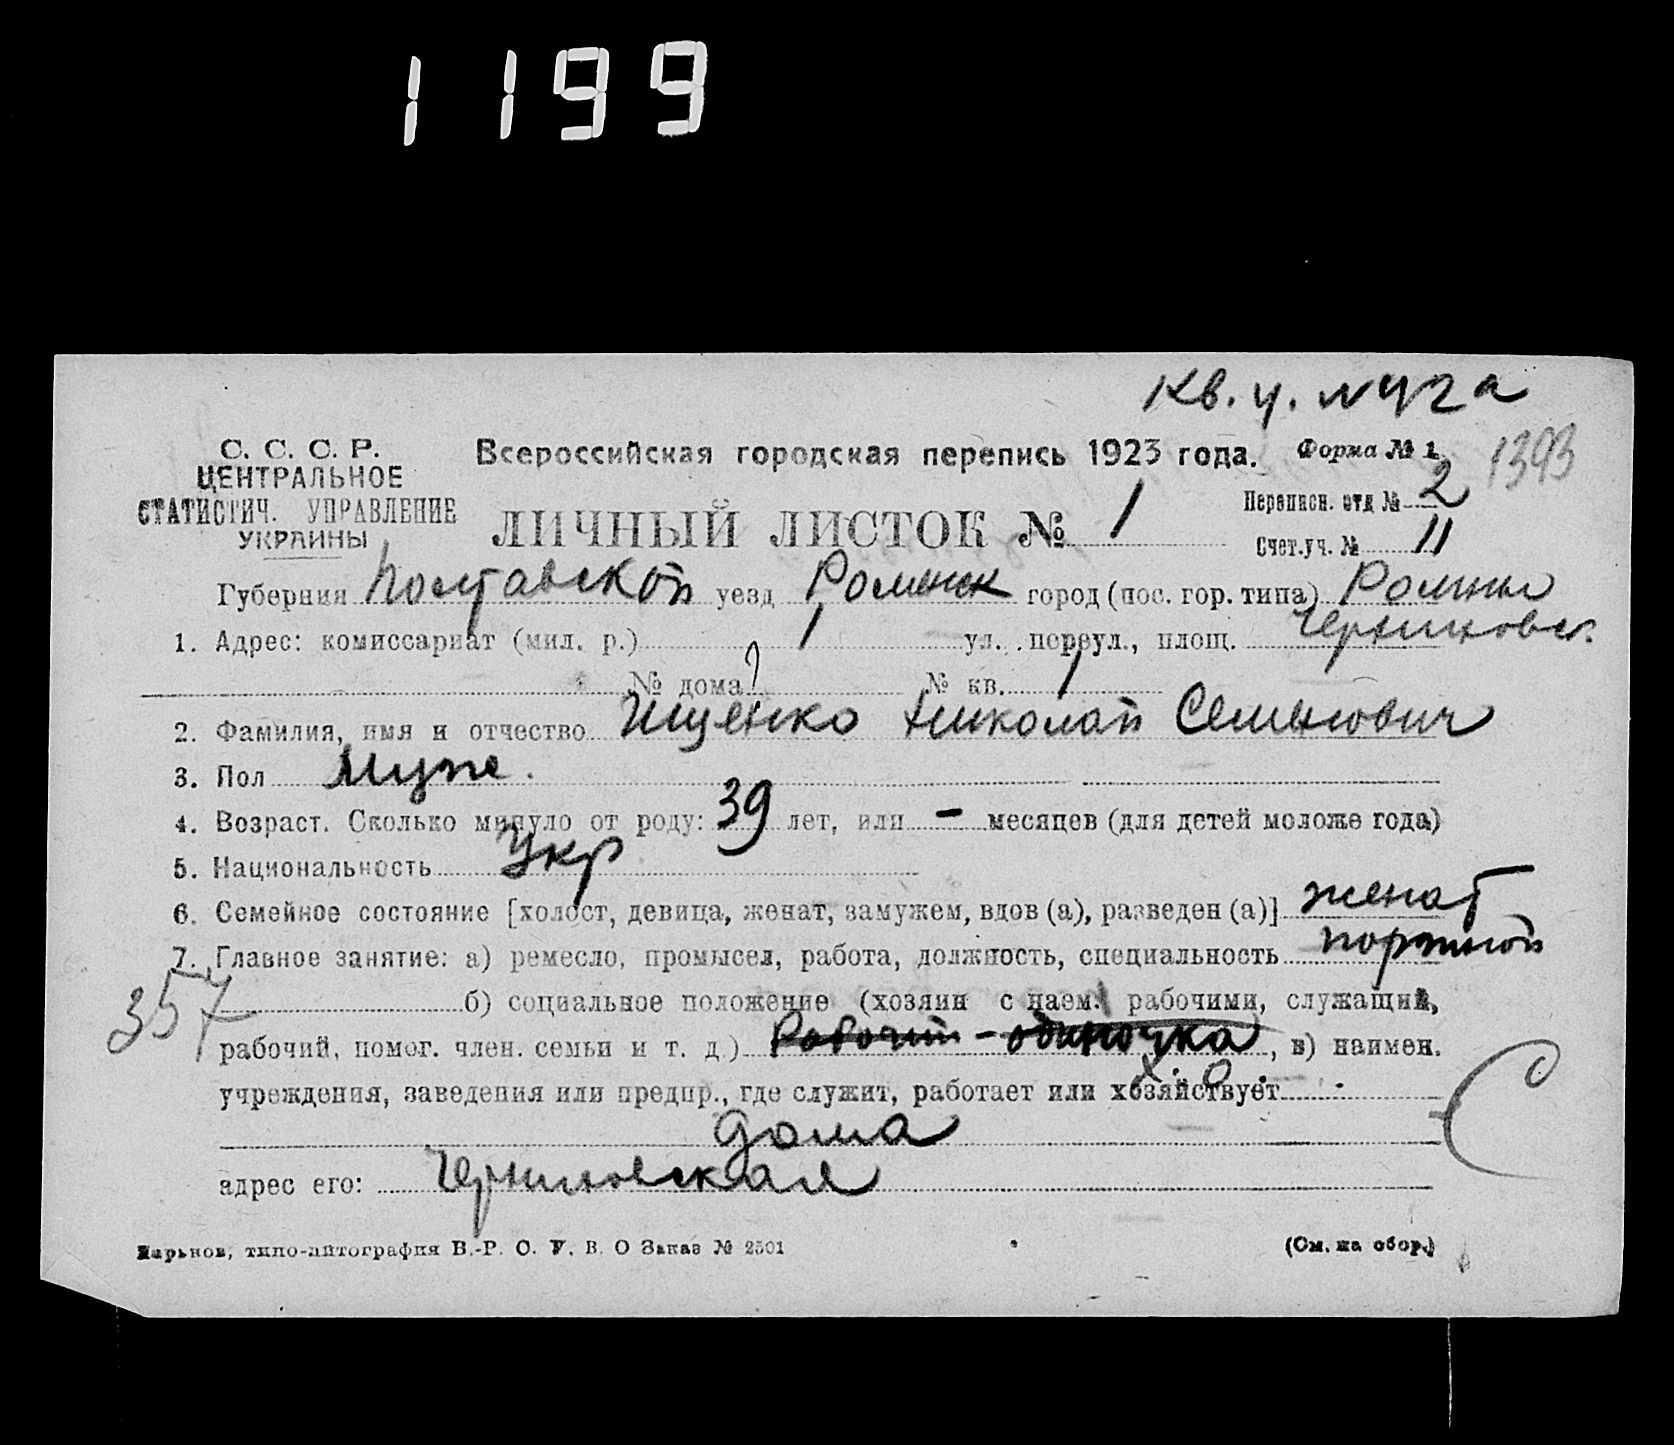 1199
Кв. ч. N 42 а
С. С. С. Р.
ЦЕНТРАЛЬНОЕ
СТАТИСТИЧ. УПРАВЛЕНИЕ
УКРАИНЫ
Всероссийская городская перепись 1923 года. Форма № 1
1393
ЛИЧНЫЙ ЛИСТОК № 1
Переписн. отд № 2
Счет.уч. № 11
Губерния Полтавской уезд Роменск город (пос. гор. типа) Ромны
1. Адрес: комиссариат (мил. р.) 1 ул. переул., площ.
№ дома № кв. 1
2. Фамилия, имя и отчество Ищенко Николай Семенович
3. Пол муж.
4. Возраст. Сколько минуло от роду: 39 лет, или - месяцев (для детей моложе года)
5. Национальность Укр
6. Семейное состояние [холост, девица, женат, замужем, вдов (а), разведен (а)] женат
7. Главное занятие: а) ремесло, промысел, работа, должность, специальность портной
357
б) социальное положение (хозяин с наем. рабочими, служащий,
рабочий, помог. член. семьи и т. д.) Рабочий - одиночка, в) наимен.
Х. О.
учреждения, заведения или предпр., где служит, работает или хозяйствует
дома
адрес его:
Харьков, типо-литография В.-Р. С. У. В. О Заказ № 2301
(См. на обор.)